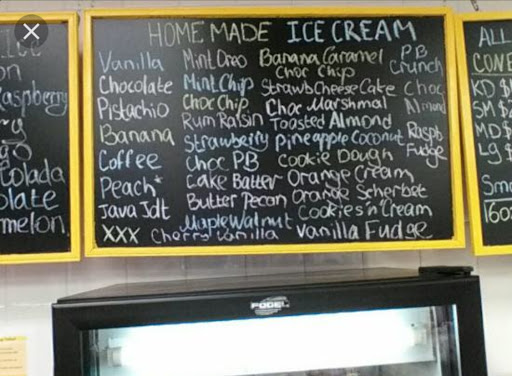 ICE
on
Raspberry
Colada
late
melon
HOME MADE ICE CREAM
Vanilla
Chocolate
Pistachio
Banana
Coffee
Peach*
Java Jdt
XXX
Mint Oreo
Mint Chip
Choc Chip
Rum Raisin
Strawberry
Choc PB
Cake Batter
Butter Pecan
Maple Walnut
Cherry Vanilla
Banana Caramel
Choc Chip
Strawb Cheese Cake
Choc Marshmal
Toasted Almond
Pineapple Coconut
Cookie Dough
Orange Cream
Orange Scherbet
Cookies'n'Cream
Vanilla Fudge
PB
Crunch
Choc
Almond
Raspb
Fudge
ALL
CONE
KD $
SM $
MD $
Lg $
16oz
FOGEL